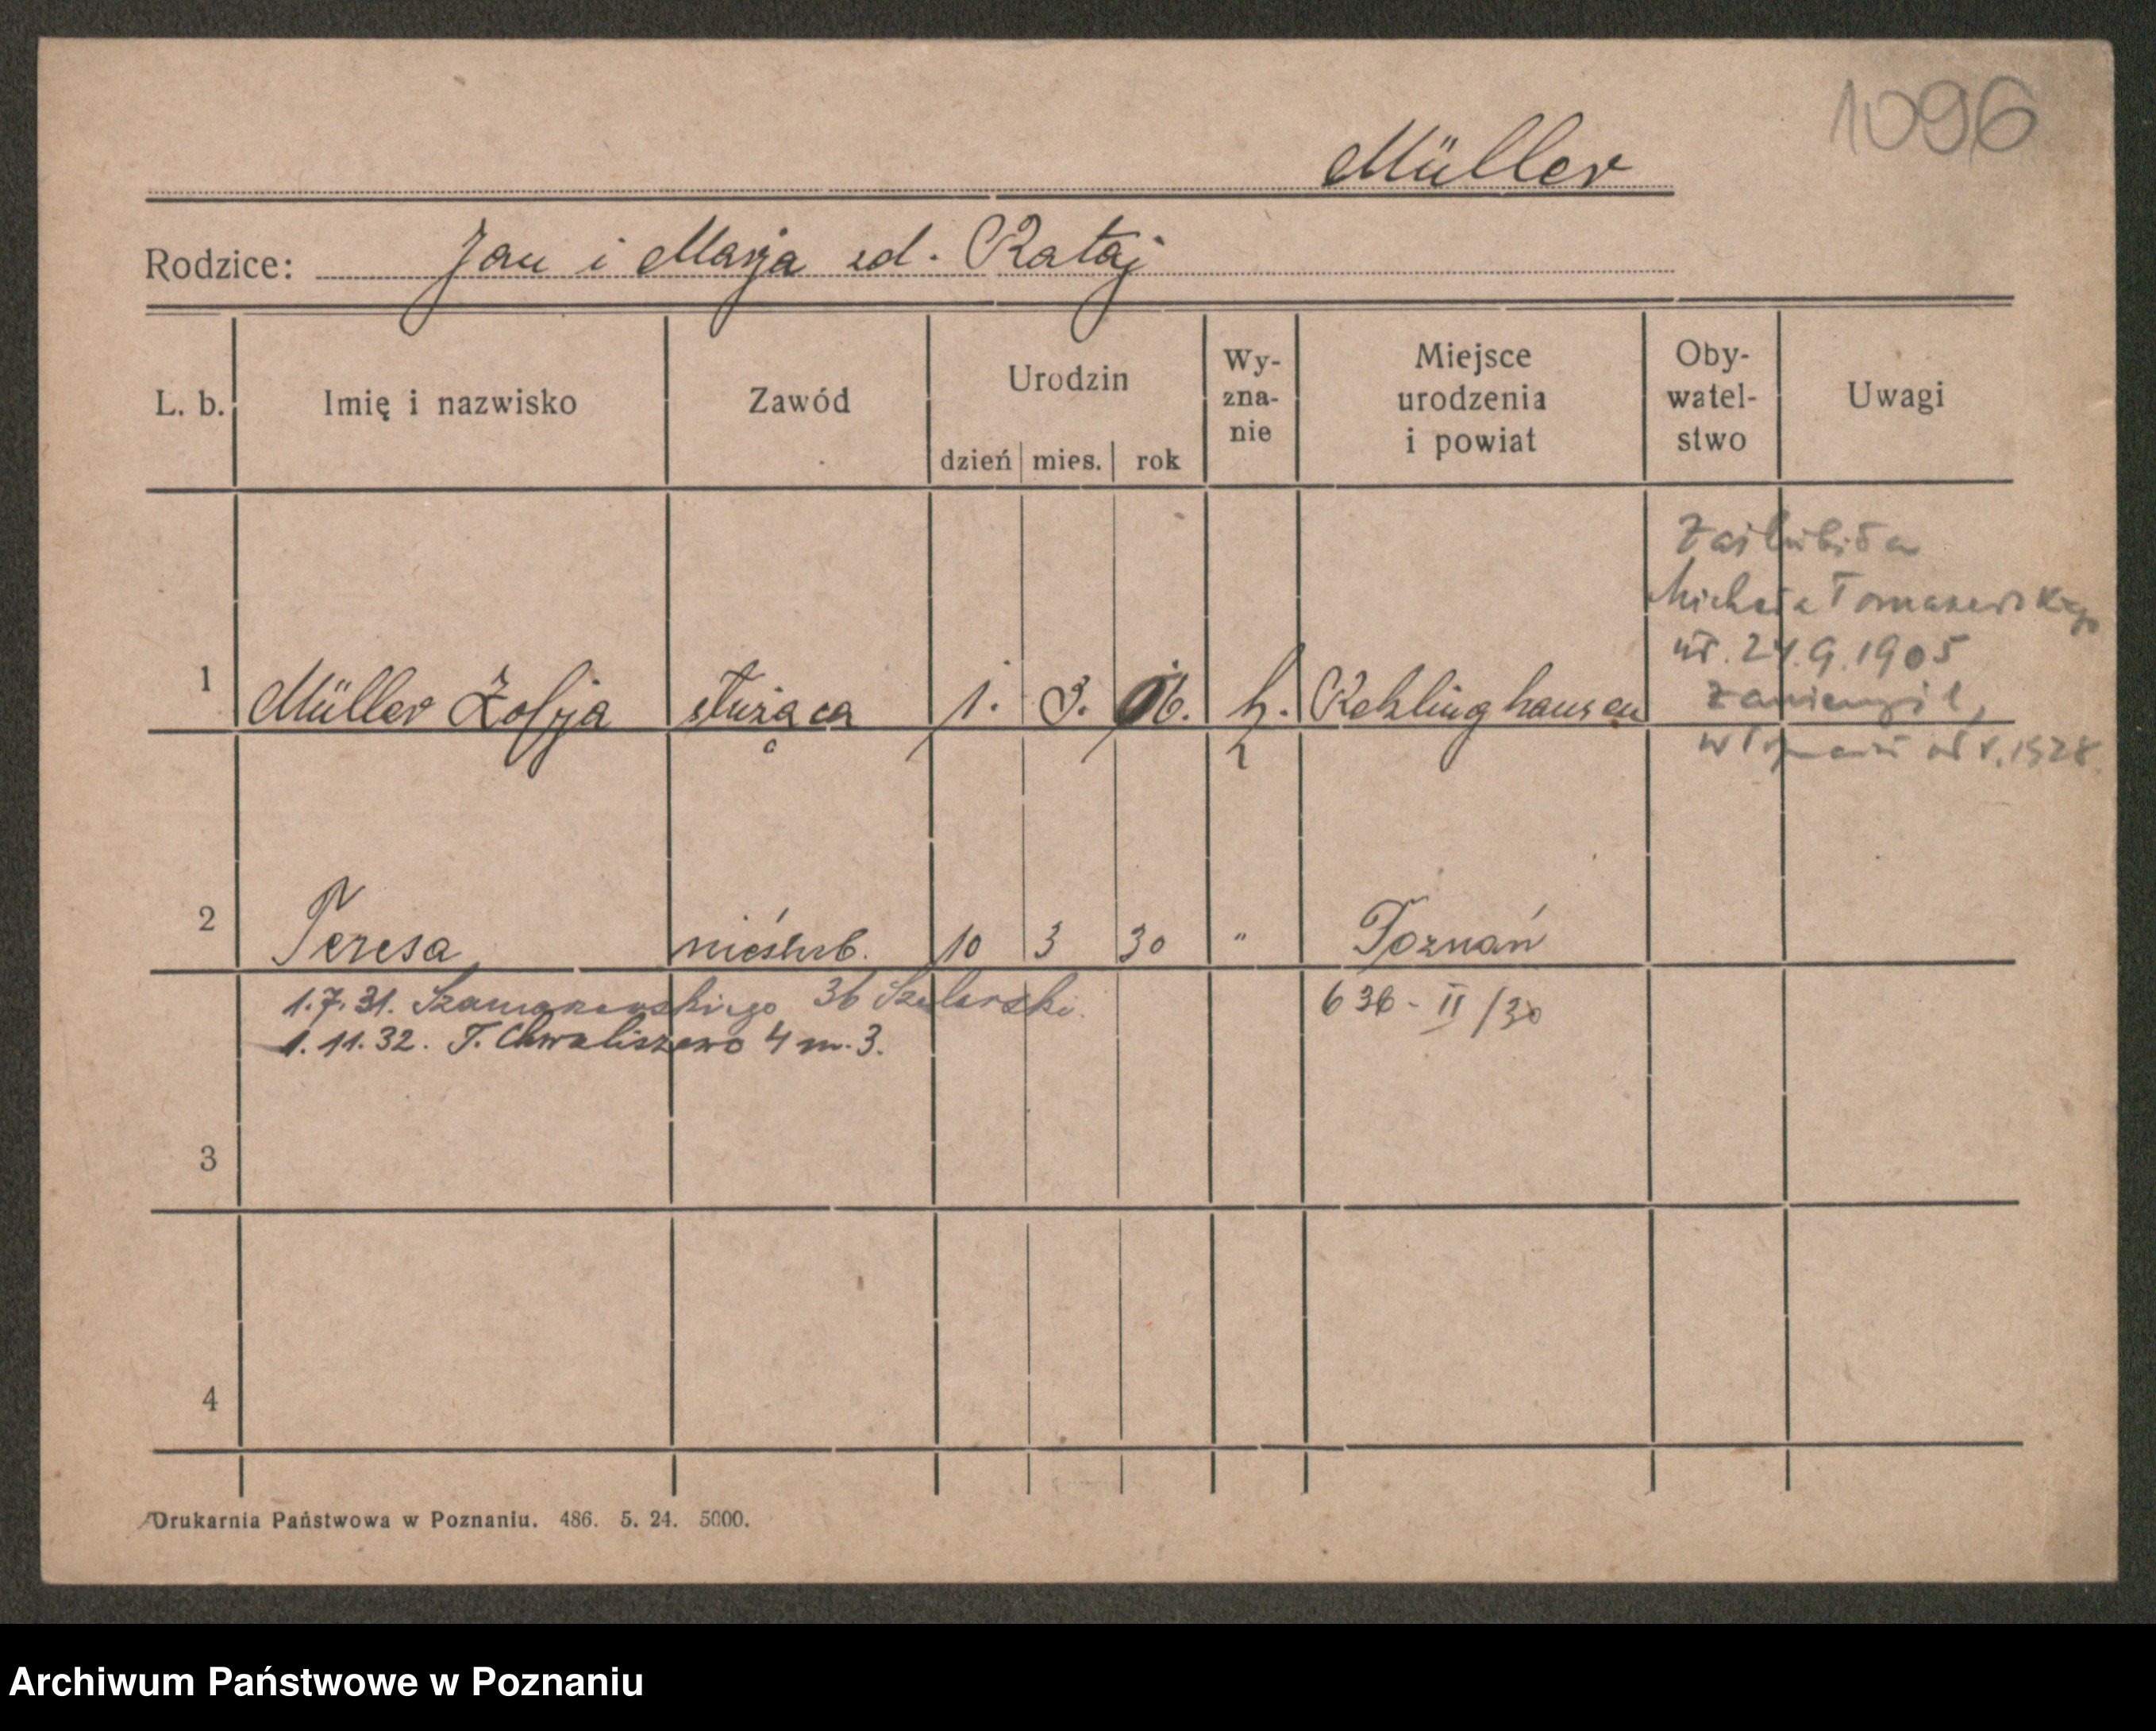 1096
Müller
Rodzice: Jan i Marja zd. Rataj
L. b. Imię i nazwisko Zawód Urodzin dzień mies. rok Wy-zna-nie Miejsce urodzenia i powiat Oby-watel-stwo Uwagi
Zaślubiła
Michała Tomaszewskiego
ur. 24.9.1905
Zaniemyśl,
w Poznaniu od r. 1928
1 Müller Zofja służąca 1. 3. 06. k. Reklinghausen
2 Teresa nieślub. 10 3 30 " Poznań
1.7.31. Szamarzewskiego 36 Szelerski. 636 - II/30
1.11.32. T. Chwaliszewo 4 m. 3.
3
4
Drukarnia Państwowa w Poznaniu. 486. 5. 24. 5000.
Archiwum Państwowe w Poznaniu